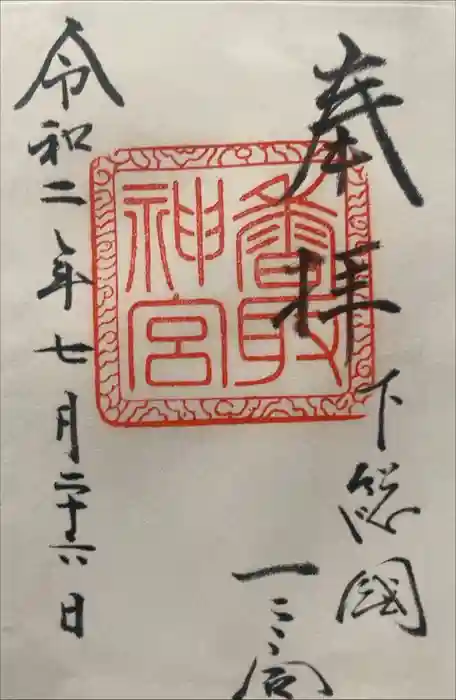 奉拝
下総國
一之宮
香取神宮
令和二年七月二十六日